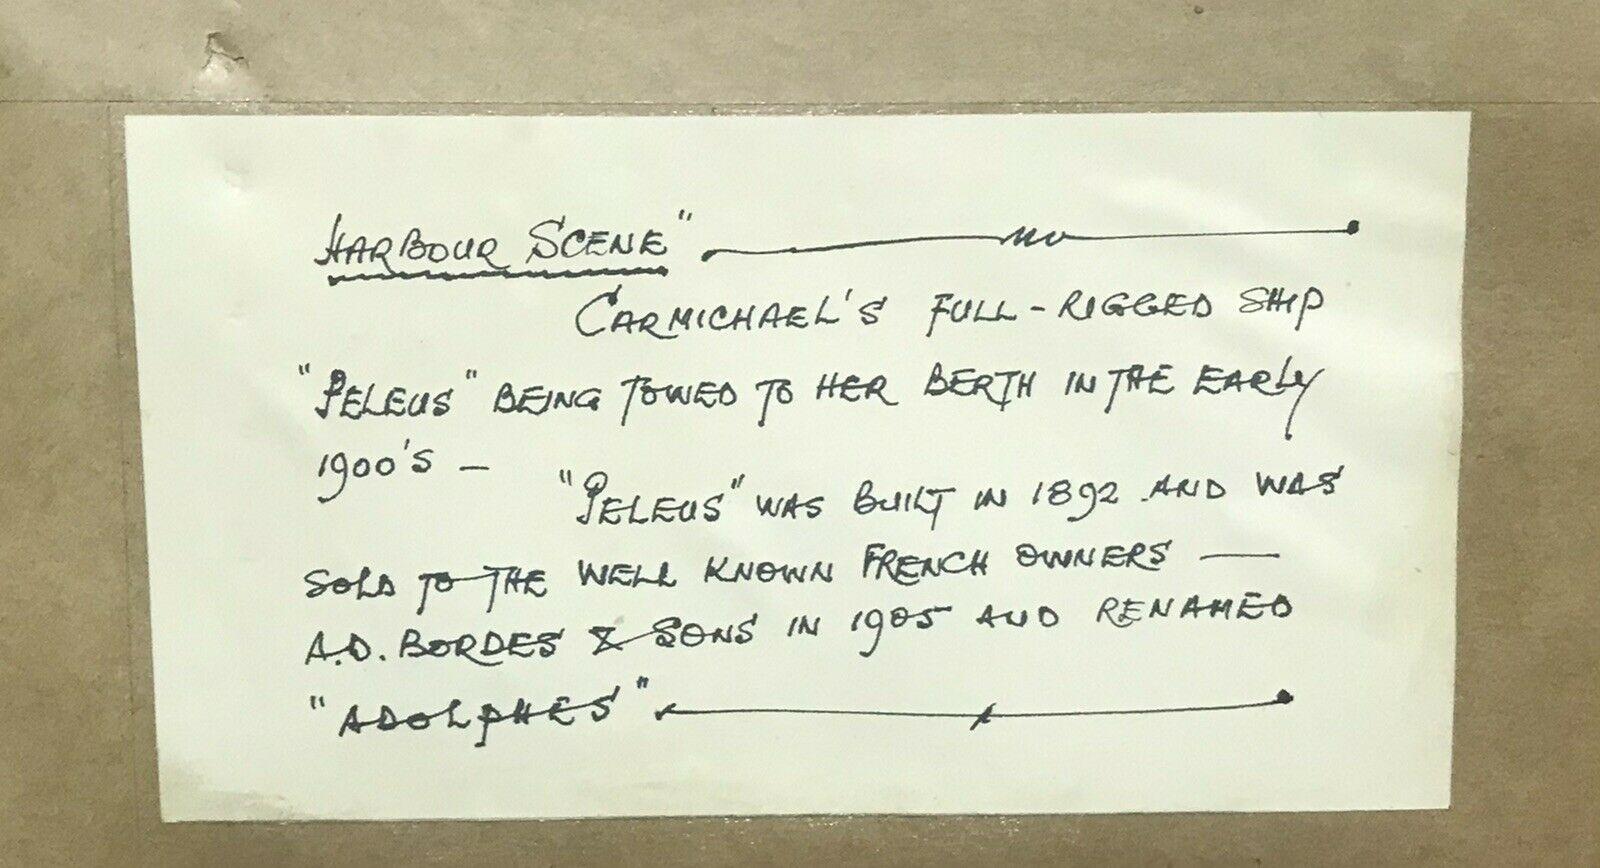 HARBOUR SCENE"
CARMICHAEL'S FULL-RIGGED SHIP
"PELEUS" BEING TOWED TO HER BERTH IN THE EARLY
1900'S –
"PELEUS" WAS BUILT IN 1892 AND WAS
SOLD TO THE WELL KNOWN FRENCH OWNERS —
A.D. BORDES & SONS IN 1905 AND RENAMED
"ADOLPHES"